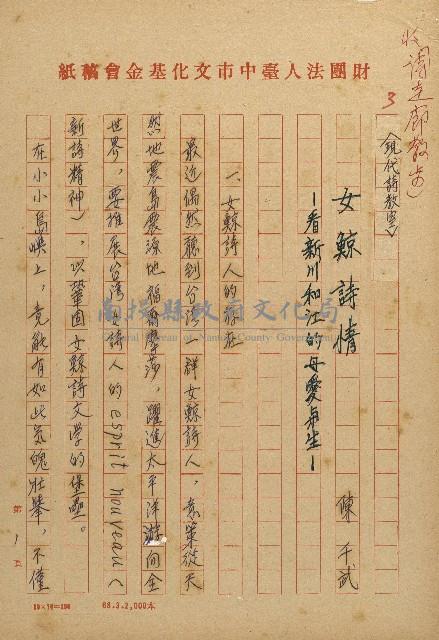 財團法人臺中市文化基金會稿紙
收「詩走廊散步」
3
《現代詩教室》
女鯨詩情
—看新川和江的母愛
陳千武
一、女鯨詩人的
最近偶然聽到台湾一群女鯨詩人,意策從天
然地震島震源地福爾摩莎,躍進太平洋游向全
世界,要推展台湾女詩人的esprit nouveau(
新詩精神),以鞏固女鯨詩文學的堡壘。
在小小島嶼上,竟能有如此気魄壯舉,不僅
第1頁
68.3.2,000本
南投縣政府文化局
Cultural Bureau of Nantou County Government